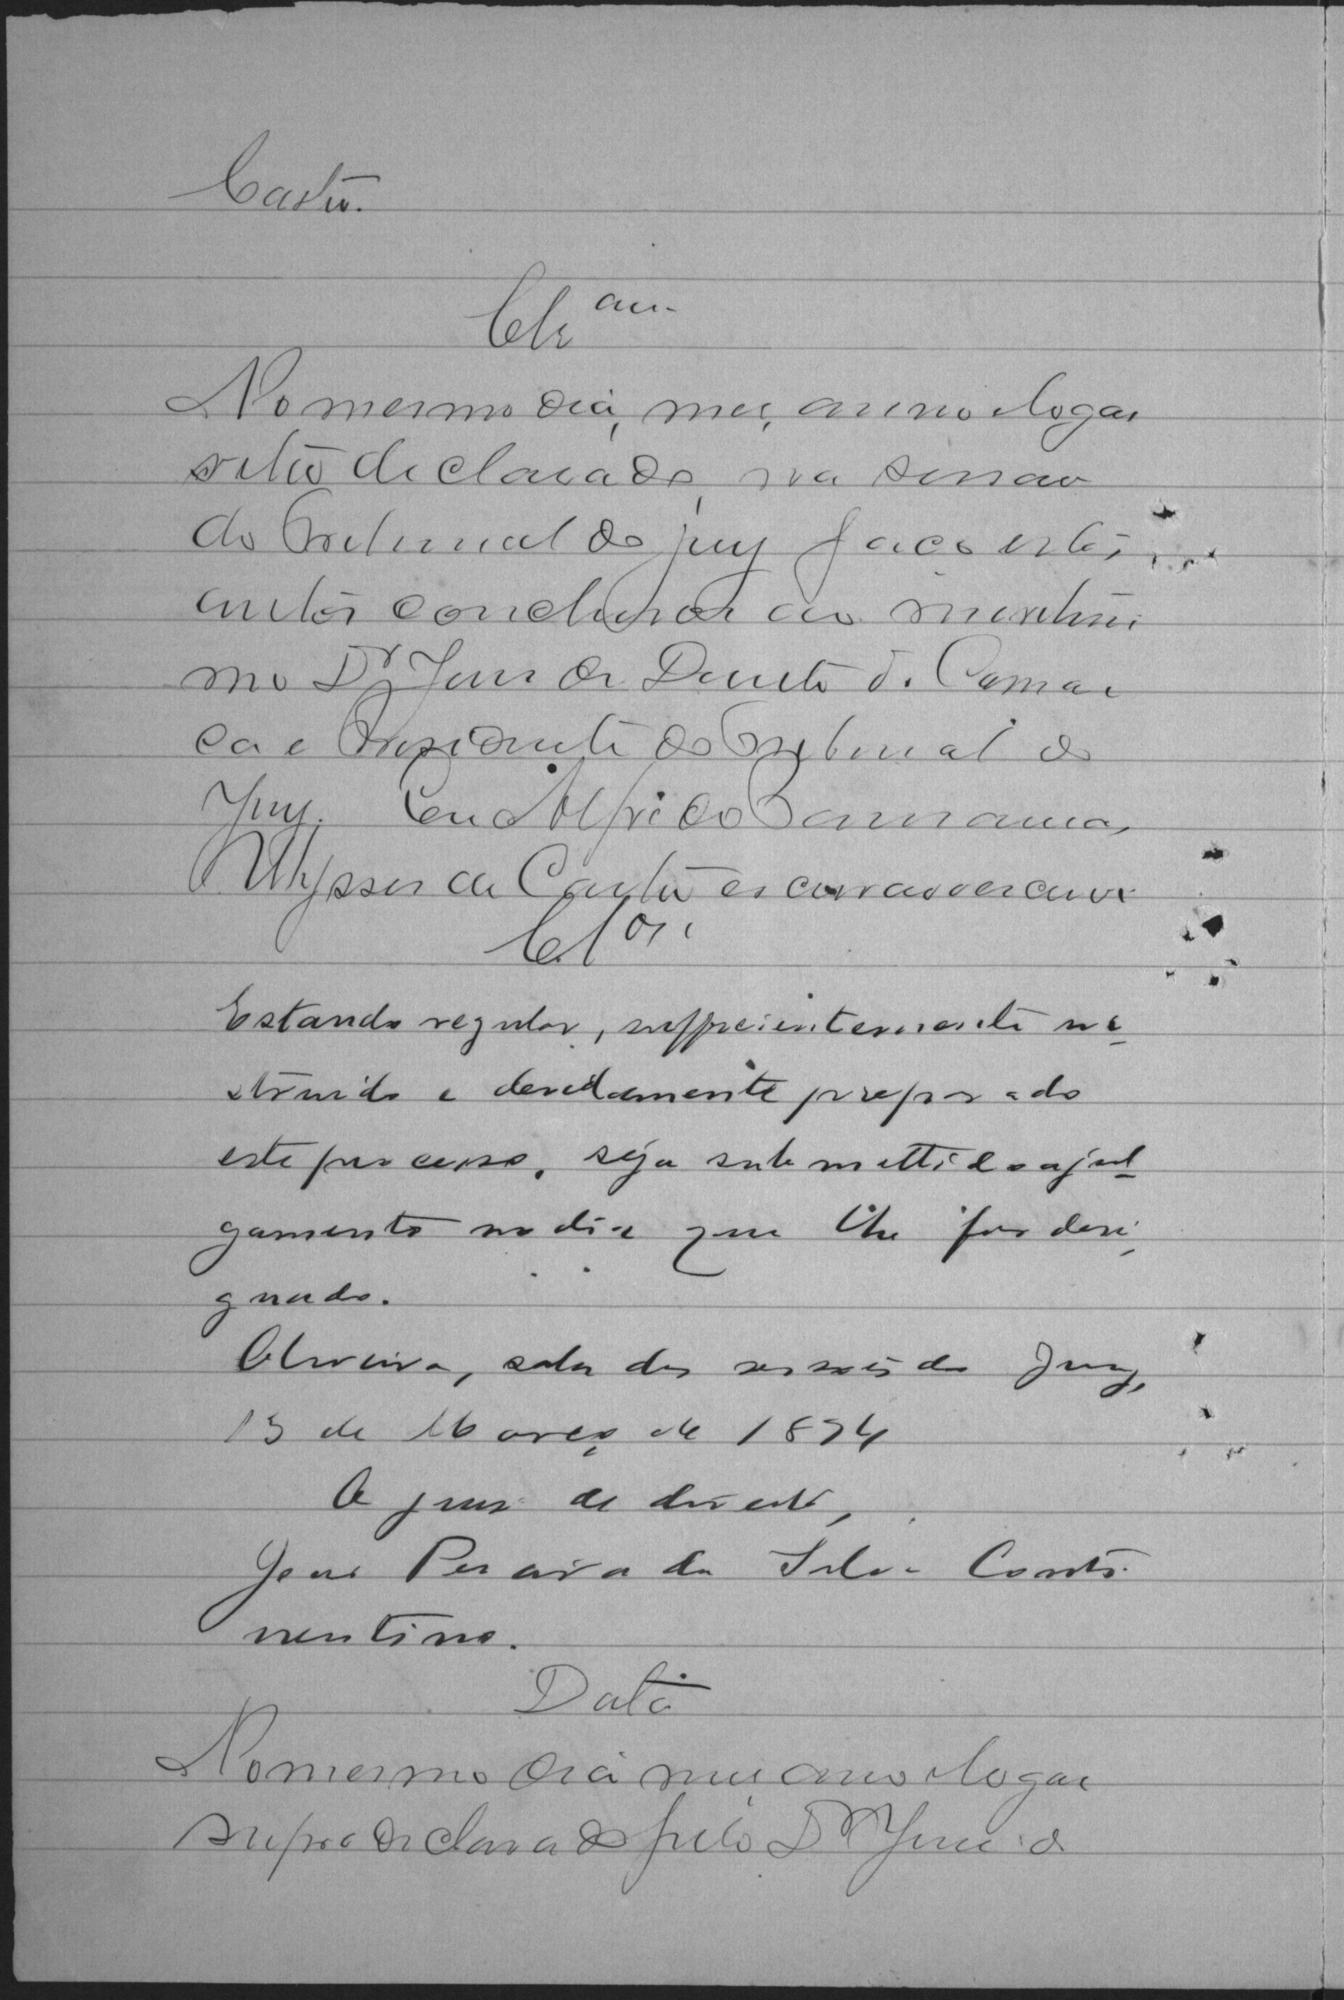 Castro.
Clsam
No mesmo dia, mez, anno e logar
retro declarado, na sessão
do Tribunal do jury faço estes
autos conclusos ao meritissi
mo Dr Juiz de Direito da Comar
ca e Presidente do Tribunal do
Jury. Eu Alfredo
Ulysses de Castro escrivão escrevi
Clos.
Estando regular, sufficientemente in
struido e devidamente preparado
este processo, seja submettido a jul
gamento no dia que lhe for desi
gnado.
Oliveira, sala das sessões do Jury,
13 de Março de 1894
O juiz de direito,
José Pereira da Silva Conti
nentino.
Data
No mesmo dia mez anno e logar
supra declarado pelo Dr Juiz d